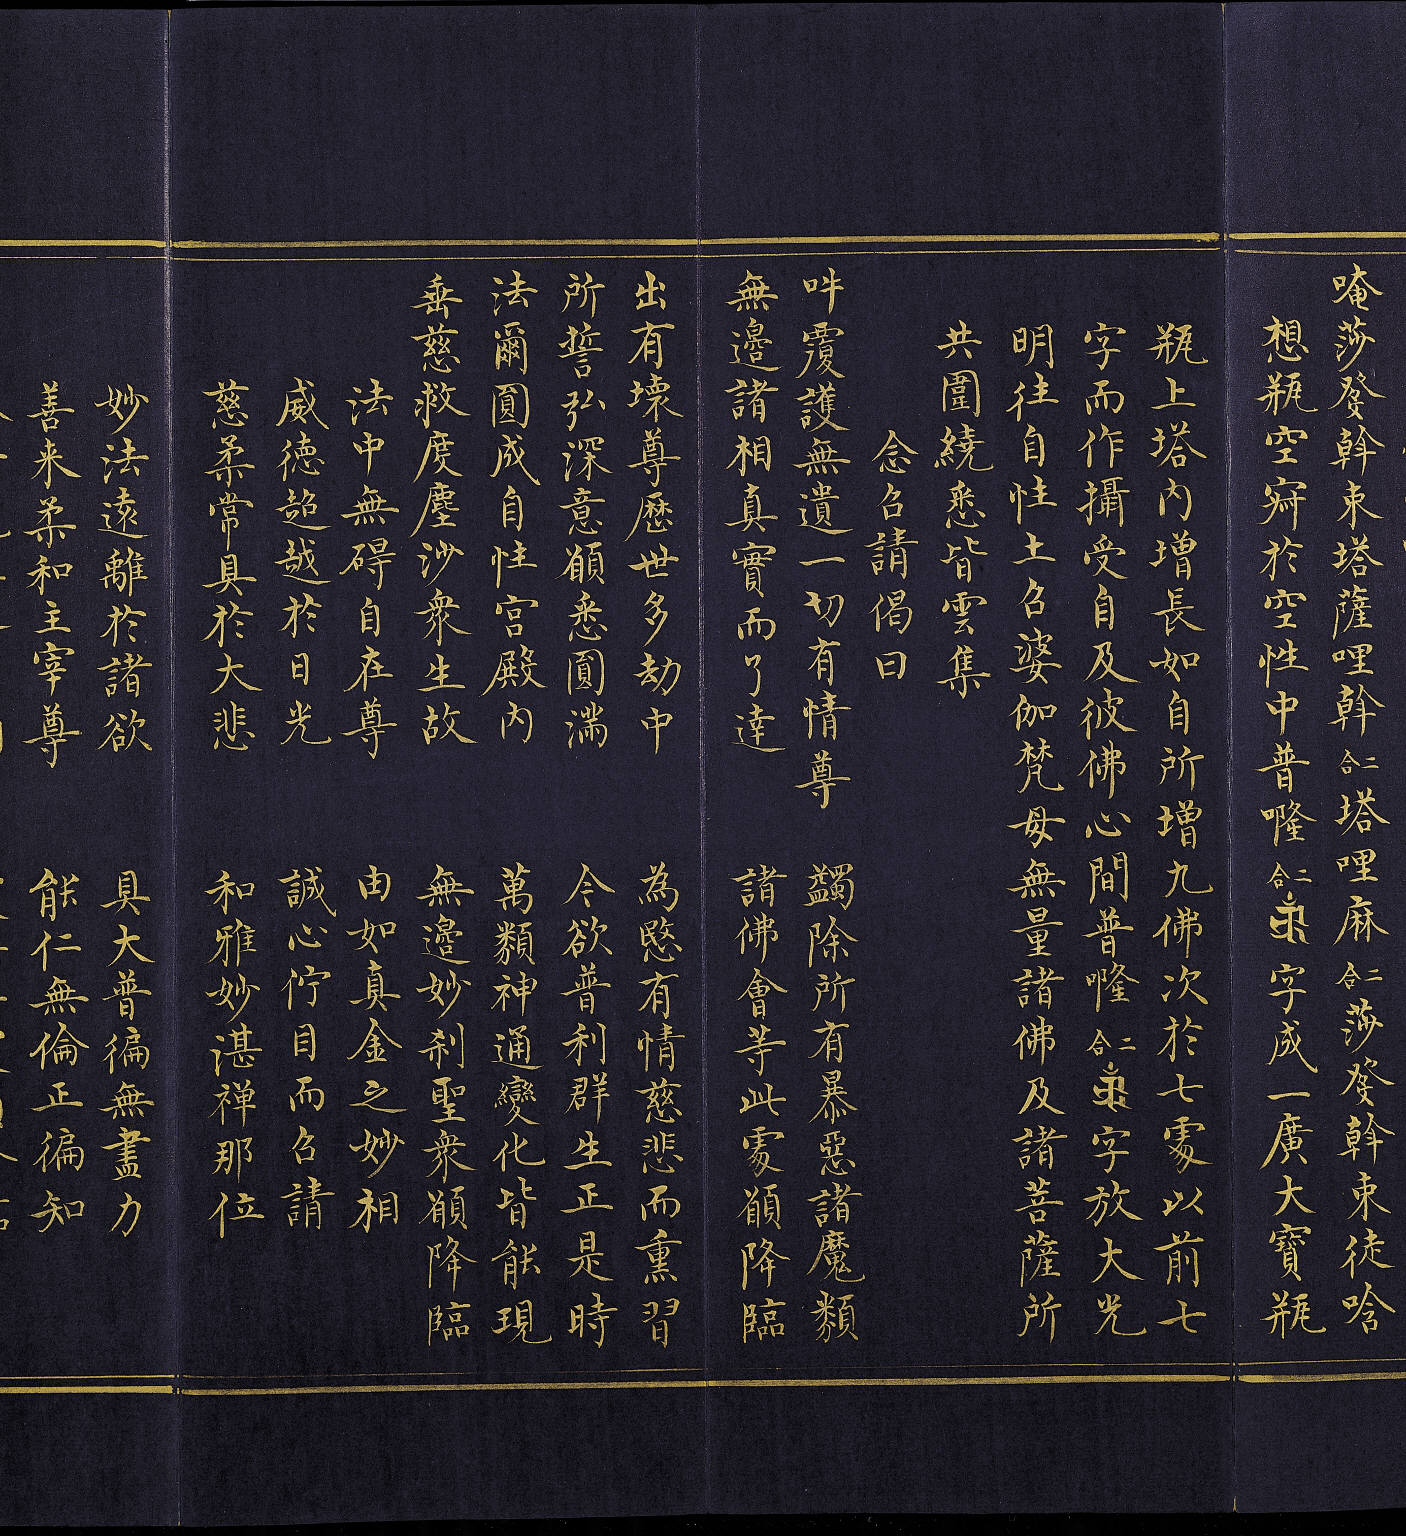 唵莎癹斡束塔薩哩斡二合塔哩麻二合莎癹斡束徒哈
想瓶空𡨋於空性中普嚨二合字成一廣大寶瓶
瓶上塔內增長如自所增九佛次於七處以前七
字而作攝受自及彼佛心間普嚨二合字放大光
明往自性土召婆伽梵母無量諸佛及諸菩薩所
共圍繞悉皆雲集
念召請偈曰
吽覆護無遺一切有情尊 蠲除所有暴惡諸魔類
無邊諸相真實而了達 諸佛會等此處願降臨
出有壞尊歷世多劫中 為愍有情慈悲而熏習
所誓弘深意願悉圓滿 令欲普利群生正是時
法爾圓成自性宮殿內 萬類神通變化皆能現
垂慈救度塵沙眾生故 無邊妙剎聖眾願降臨
法中無碍自在尊 由如真金之妙相
威德超越於日光 誠心佇目而召請
慈柔常具於大悲 和雅妙湛禅那位
妙法遠離於諸欲 具大普徧無盡力
善来柔和主宰尊 能仁無倫正徧知